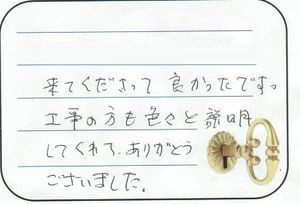 来てくださって 良かったです。
工事の方も色々と説明
してくれて、ありがとう
ございました。